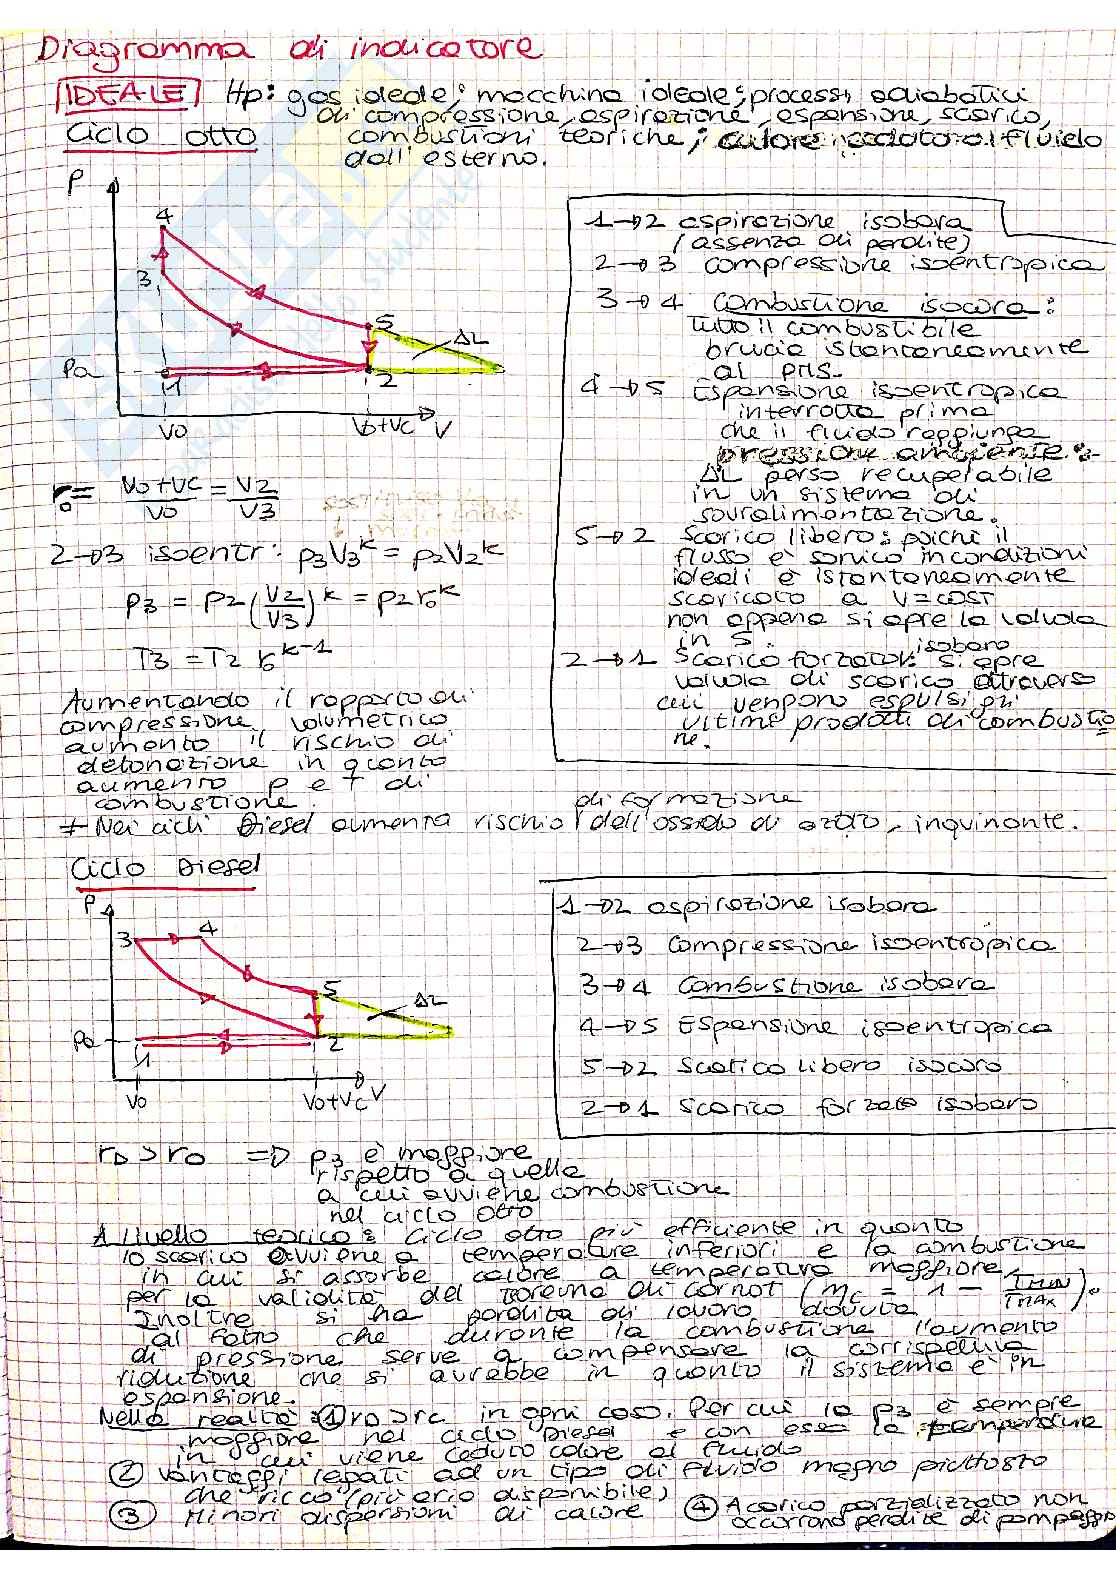 Diagramma di indicatore
IDEALE Hp: gas ideale; macchina ideale; processi adiabatici
di compressione, aspirazione, espansione, scarico,
Ciclo otto combustioni teoriche; calore ceduto al fluido
dall'esterno.
P
4
3
5
ΔL
Pa
1
2
V0
V0+Vc V
1→2 aspirazione isobara
(assenza di perdite)
2→3 compressione isoentropica
3→4 Combustione isocora:
tutto il combustibile
brucia istantaneamente
al PMS.
4→5 Espansione isoentropica
interrotta prima
che il fluido raggiunga
pressione ambiente.
ΔL perso recuperabile
in un sistema di
sovralimentazione.
5→2 Scarico libero: poichè il
flusso è sonico in condizioni
ideali è istantaneamente
scaricato a V=cost
non appena si apre la valvola
in 5.
isobaro
2→1 Scarico forzato: si apre
valvola di scarico attraverso
cui vengono espulsi gli
ultimi prodotti di combustio
ne.
r0 = V0+Vc/V0 = V2/V3
2→3 isoentr: p3V3^k = p2V2^k
p3 = p2 (V2/V3)^k = p2 r0^k
T3 = T2 r0^k-1
Aumentando il rapporto di
compressione volumetrico
aumento il rischio di
detonazione in quanto
aumento p e T di
combustione.
di formazione
+ Nei cicli Diesel aumenta rischio dell'ossido di azoto, inquinante.
Ciclo Diesel
P
3
4
5
ΔL
Pa
1
2
V0
V0+Vc V
1→2 aspirazione isobara
2→3 Compressione isoentropica
3→4 Combustione isobara
4→5 Espansione isoentropica
5→2 Scarico libero isocoro
2→1 Scarico forzato isobaro
rD > r0 => p3 è maggiore
rispetto a quella
a cui avviene combustione
nel ciclo otto
A livello teorico: Ciclo otto più efficiente in quanto
lo scarico avviene a temperature inferiori e la combustione
in cui si assorbe calore a temperatura maggiore,
per la validità del teorema di Carnot (ηc = 1 - TMIN/TMAX).
Inoltre si ha perdita di lavoro dovuta
al fatto che durante la combustione l'aumento
di pressione serve a compensare la corrispettiva
riduzione che si avrebbe in quanto il sistema è in
espansione.
Nella realtà: ① rD > rc in ogni caso. Per cui la p3 è sempre
maggiore nel ciclo Diesel e con essa la temperatura
in cui viene ceduto calore al fluido
② Vantaggi legati ad un tipo di fluido magro piuttosto
che ricco (più aria disponibile)
③ Minori dispersioni di calore ④ A carico parzializzato non
occorrono perdite di pompaggio